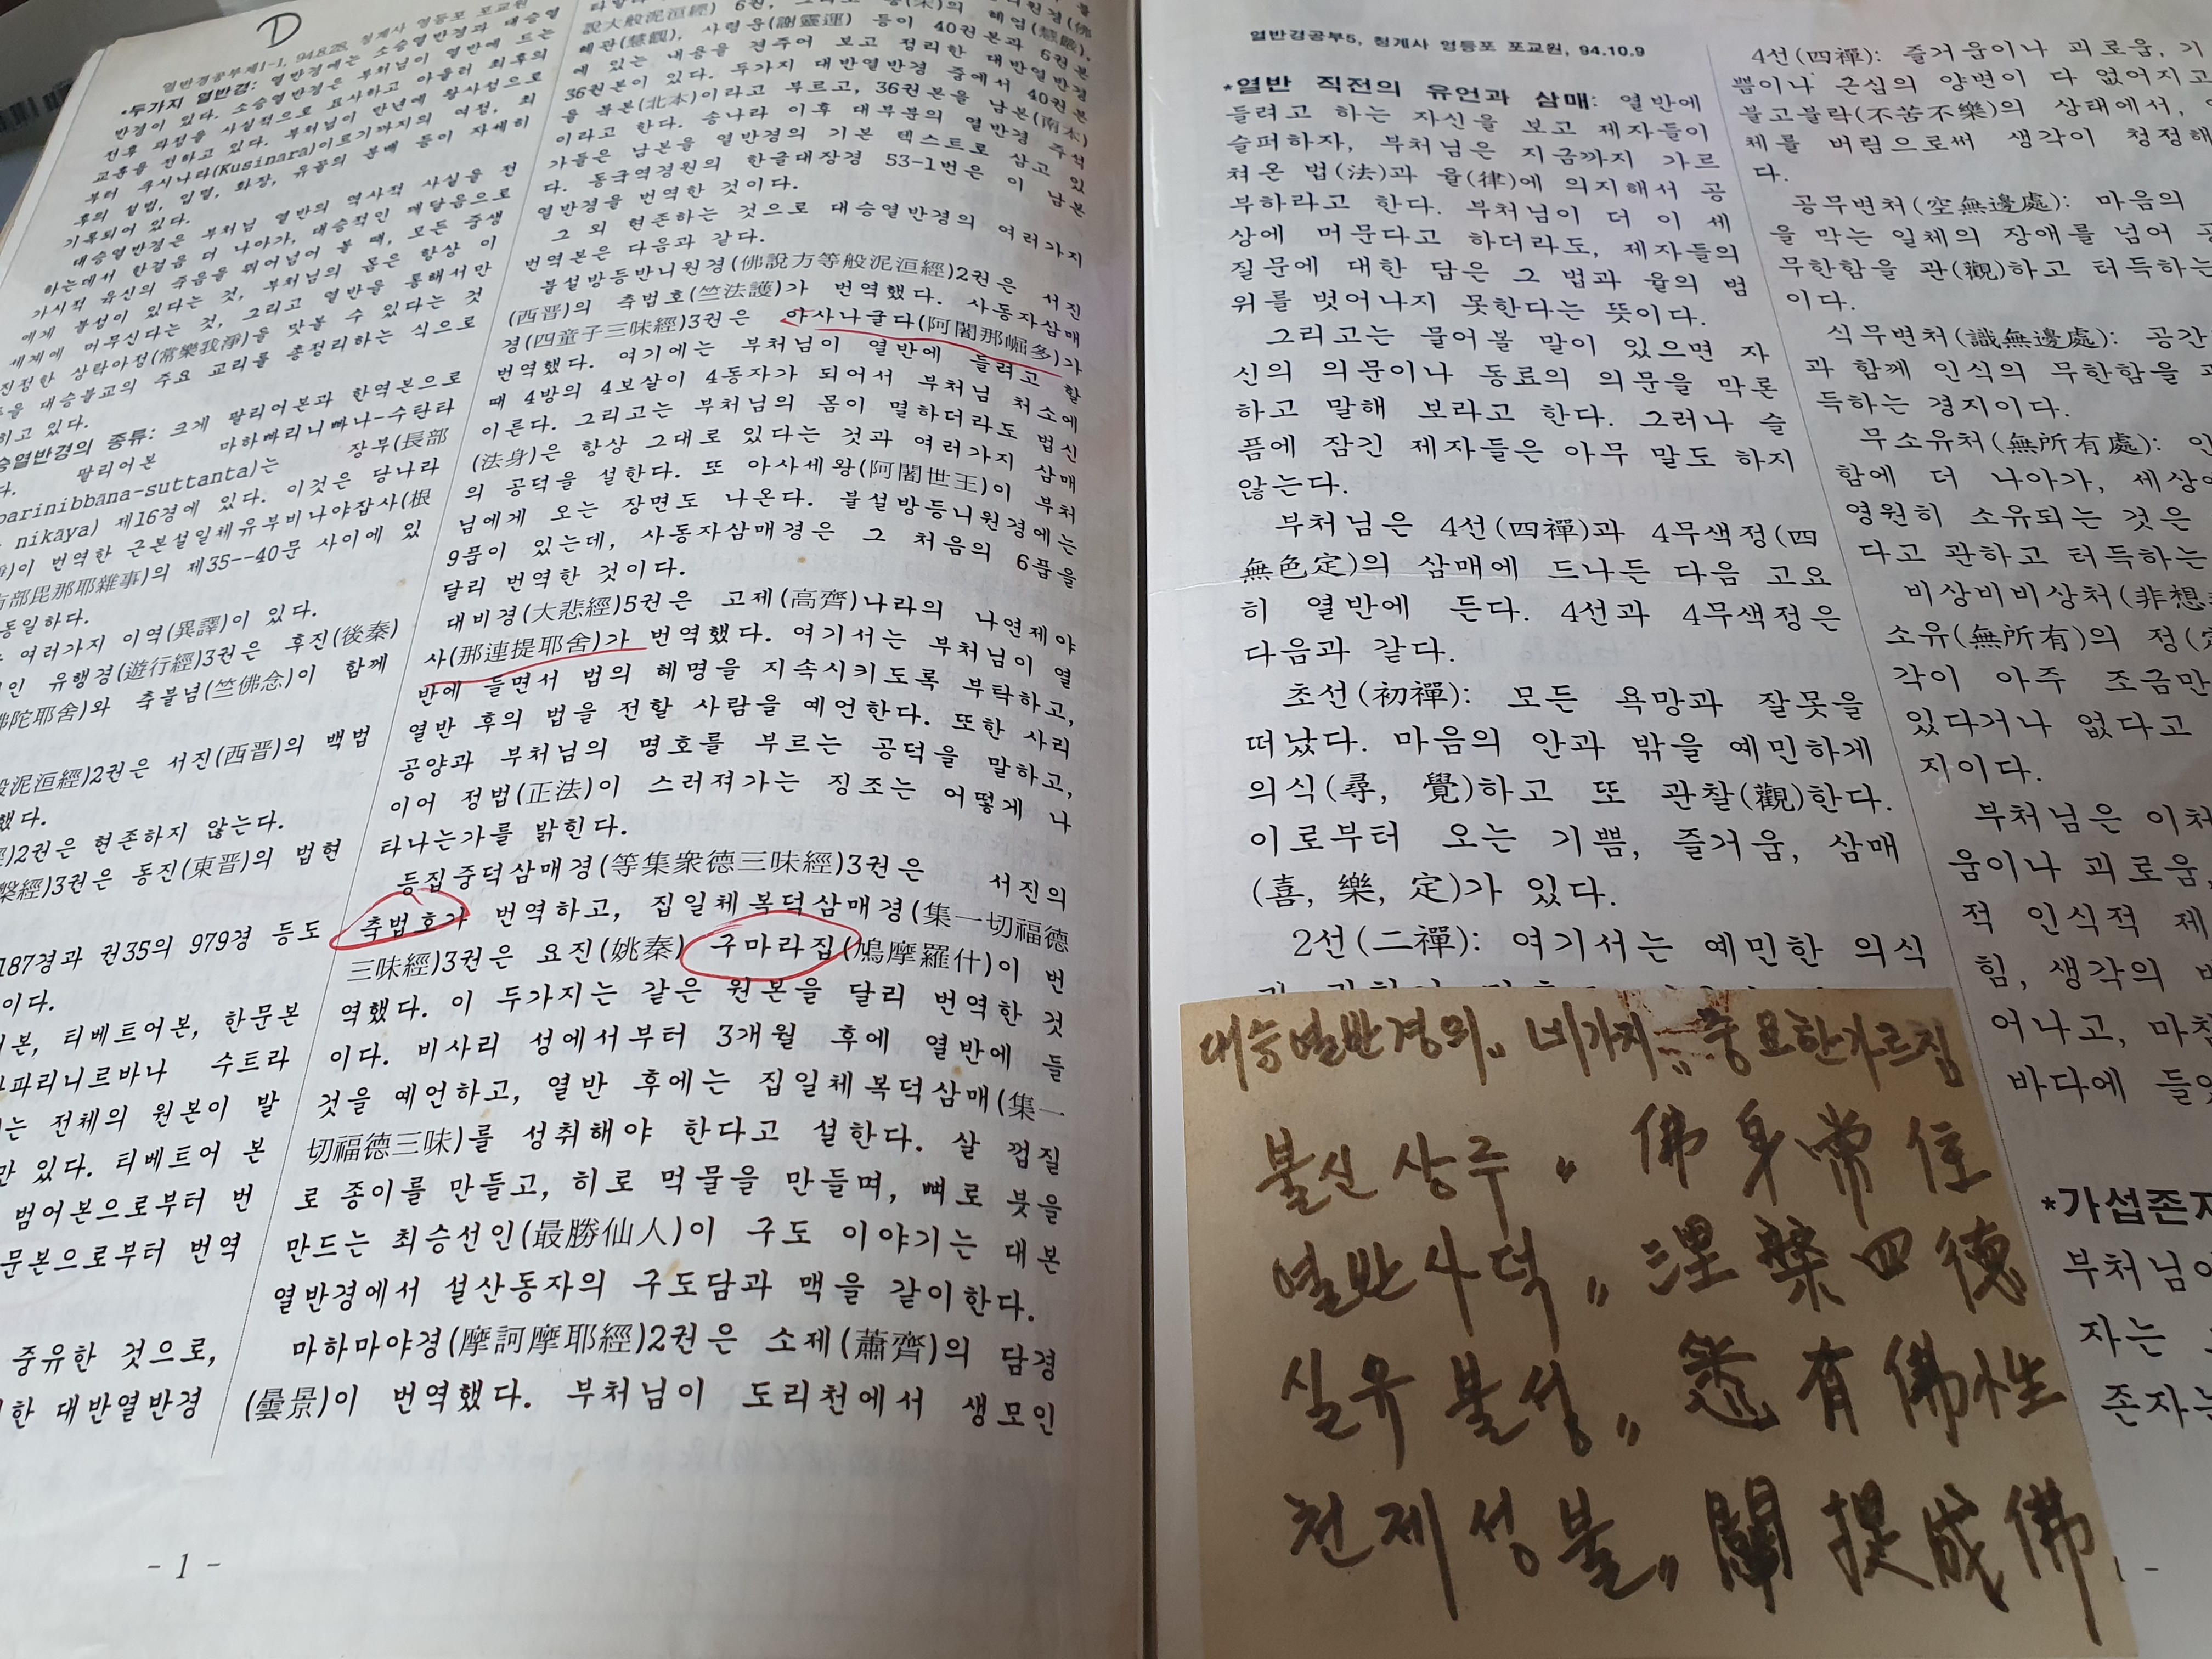 D
열반경공부제1-1, 94.8.28, 청계사 영등포 포교원
*두가지 열반경: 열반경에는 소승열반경과 대승열
반경이 있다. 소승열반경은 부처님이 열반에 드는
전후 과정을 사실적으로 묘사하고 아울러 최후의
교훈을 전하고 있다. 부처님이 만년에 왕사성으로
부터 쿠시나라(Kusinara)이르기까지의 여정, 최
후의 설법, 입멸, 화장, 유골의 분배 등이 자세히
기록되어 있다.
대승열반경은 부처님 열반의 역사적 사실을 전
하는데서 한걸음 더 나아가, 대승적인 깨달음으로
가시적 육신의 죽음을 뛰어넘어 볼 때, 모든 중생
에게 불성이 있다는 것, 부처님의 몸은 항상 이
세계에 머무신다는 것, 그리고 열반을 통해서만
진정한 상락아정(常樂我淨)을 맛볼 수 있다는 것
을 대승불교의 주요 교리를 총정리하는 식으로
히고 있다.
승열반경의 종류: 크게 팔리어본과 한역본으로
다. 팔리어본 마하빠리니빠나-수탄타
parinibbana-suttanta)는 장부(長部
nikāya) 제16경에 있다. 이것은 당나라
이 번역한 근본설일체유부비나야잡사(根
有部毘那耶雜事)의 제35--40문 사이에 있
동일하다.
여러가지 이역(異譯)이 있다.
인 유행경(遊行經)3권은 후진(後秦)
佛陀耶舍)와 축불념(竺佛念)이 함께
般泥洹經)2권은 서진(西晋)의 백법
했다.
2권은 현존하지 않는다.
槃經)3권은 동진(東晋)의 법현
187경과 권35의 979경 등도
이다.
어본, 티베트어본, 한문본
파리니르바나 수트라
는 전체의 원본이 발
만 있다. 티베트어 본
범어본으로부터 번
문본으로부터 번역
중유한 것으로,
한 대반열반경
說大般泥洹經) 6권,
혜관(慧觀), 사령운(謝靈運) 등이 40권본과 6권본
에 있는 내용을 견주어 보고 정리한 대반열반경
36권본이 있다. 두가지 대반열반경 중에서 40권본
을 북본(北本)이라고 부르고, 36권본을 남본(南本)
이라고 한다. 송나라 이후 대부분의 열반경 주석
가들은 남본을 열반경의 기본 텍스트로 삼고 있
다. 동국역경원의 한글대장경 53-1번은 이 남본
열반경을 번역한 것이다.
그 외 현존하는 것으로 대승열반경의 여러가지
번역본은 다음과 같다.
불설방등반니원경(佛說方等般泥洹經)2권은 서진
(西晋)의 축법호(竺法護)가 번역했다. 사동자삼매
경(四童子三味經)3권은 야사나굴다(阿闍那崛多)가
번역했다. 여기에는 부처님이 열반에 들려고 할
때 4방의 4보살이 4동자가 되어서 부처님 처소에
이른다. 그리고는 부처님의 몸이 멸하더라도 법신
(法身)은 항상 그대로 있다는 것과 여러가지 삼매
의 공덕을 설한다. 또 아사세왕(阿闍世王)이 부처
님에게 오는 장면도 나온다. 불설방등니원경에는
9품이 있는데, 사동자삼매경은 그 처음의 6품을
달리 번역한 것이다.
대비경(大悲經)5권은 고제(高齊)나라의 나연제야
사(那連提耶舍)가 번역했다. 여기서는 부처님이 열
반에 들면서 법의 혜명을 지속시키도록 부탁하고,
열반 후의 법을 전할 사람을 예언한다. 또한 사리
공양과 부처님의 명호를 부르는 공덕을 말하고,
이어 정법(正法)이 스러져가는 징조는 어떻게 나
타나는가를 밝힌다.
등집중덕삼매경(等集衆德三味經)3권은 서진의
축법호가 번역하고, 집일체복덕삼매경(集一切福德
三味經)3권은 요진(姚秦) 구마라집(鳩摩羅什)이 번
역했다. 이 두가지는 같은 원본을 달리 번역한 것
이다. 비사리 성에서부터 3개월 후에 열반에 들
것을 예언하고, 열반 후에는 집일체복덕삼매(集一
切福德三味)를 성취해야 한다고 설한다. 살 껍질
로 종이를 만들고, 히로 먹물을 만들며, 뼈로 붓을
만드는 최승선인(最勝仙人)이 구도 이야기는 대본
열반경에서 설산동자의 구도담과 맥을 같이한다.
마하마야경(摩訶摩耶經)2권은 소제(蕭齊)의 담경
(曇景)이 번역했다. 부처님이 도리천에서 생모인
- 1 -
열반경공부5, 청계사 영등포 포교원, 94.10.9
*열반 직전의 유언과 삼매: 열반에
들려고 하는 자신을 보고 제자들이
슬퍼하자, 부처님은 지금까지 가르
쳐온 법(法)과 율(律)에 의지해서 공
부하라고 한다. 부처님이 더 이 세
상에 머문다고 하더라도, 제자들의
질문에 대한 답은 그 법과 율의 범
위를 벗어나지 못한다는 뜻이다.
그리고는 물어볼 말이 있으면 자
신의 의문이나 동료의 의문을 막론
하고 말해 보라고 한다. 그러나 슬
픔에 잠긴 제자들은 아무 말도 하지
않는다.
부처님은 4선(四禪)과 4무색정(四
無色定)의 삼매에 드나든 다음 고요
히 열반에 든다. 4선과 4무색정은
다음과 같다.
초선(初禪): 모든 욕망과 잘못을
떠났다. 마음의 안과 밖을 예민하게
의식(尋, 覺)하고 또 관찰(觀)한다.
이로부터 오는 기쁨, 즐거움, 삼매
(喜, 樂, 定)가 있다.
2선(二禪): 여기서는 예민한 의식
4선(四禪): 즐거움이나 괴로움, 기
쁨이나 근심의 양변이 다 없어지고
불고불락(不苦不樂)의 상태에서,
체를 버림으로써 생각이 청정해
다.
공무변처(空無邊處): 마음의
을 막는 일체의 장애를 넘어
무한함을 관(觀)하고 터득하는
이다.
식무변처(識無邊處): 공간
과 함께 인식의 무한함을
득하는 경지이다.
무소유처(無所有處): 인
함에 더 나아가, 세상에
영원히 소유되는 것은
다고 관하고 터득하는
비상비비상처(非想
소유(無所有)의 정(定
각이 아주 조금만
있다거나 없다고
지이다.
부처님은 이처
움이나 괴로움,
적 인식적 제
힘, 생각의
어나고, 마침
바다에 들
*가섭존자
부처님이
자는
존자는
대승열반경의 〃 네가지 〃 중요한가르침
불신상주 〃 佛身常住
열반사덕 〃 涅槃四德
실유불성 〃 悉有佛性
천제성불 〃 闡提成佛